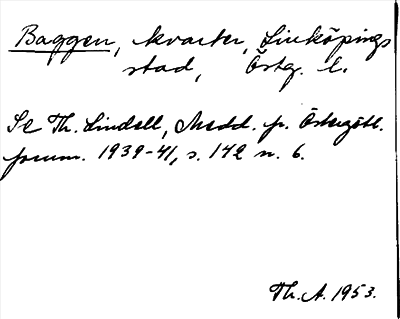 Baggen, kvarter, Linköpings
stad, Österg. l.
Se Th. Lindell, Medd. fr. Östergötl.
fornm. 1939-41, s. 142 n. 6.
Th. A. 1953.